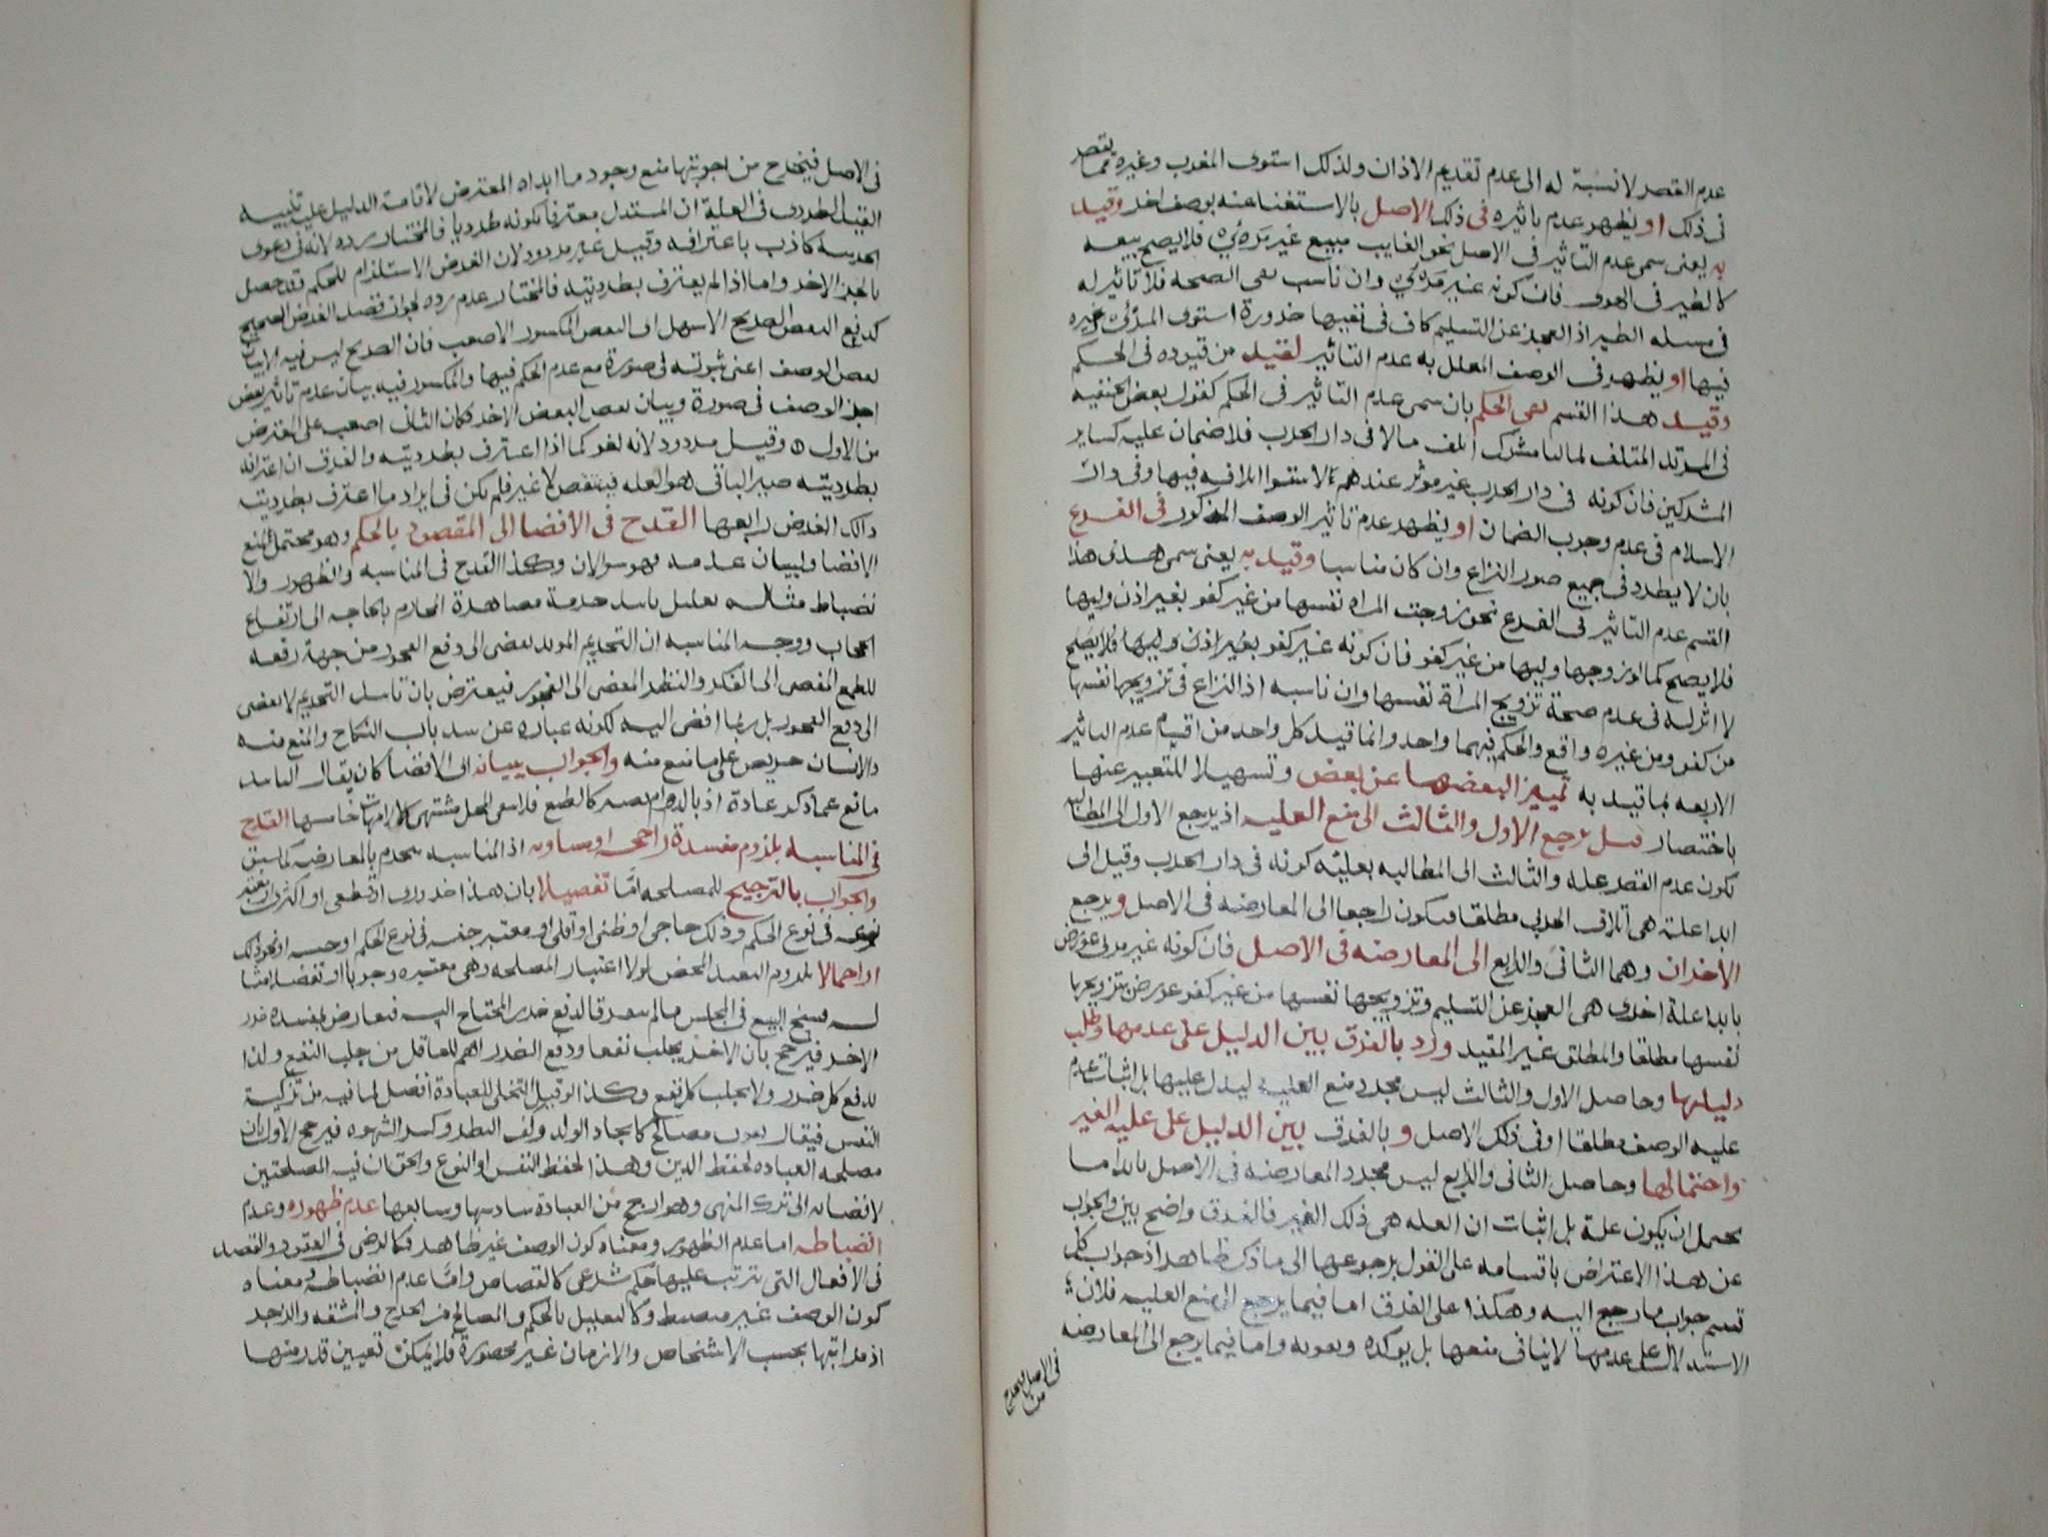 عدم القصر لا نسبة له الى عدم تقديم الاذان ولذلك استوى المغرب وغيره مما يقصر
فى ذلك او يظهر عدم تاثيره فى ذلك الاصل بالاستغنا عنه بوصف اخر وقيد
به يعنى سمى عدم التاثير فى الاصل نحو الغايب مبيع غير مرءي فلا يصح بيعه
كالطير فى الهوى فان كونه غير مرئي وان ناسب نفى الصحه فلا تاثير له
فى مسله الطير اذ العجز عن التسليم كاف فى نفيها ضرورة استوى المرئى وغيره
فيها او يظهر فى الوصف المعلل به عدم التاثير لقيد من قيوده فى الحكم
وقيد هذا القسم بفى الحكم بان سمى عدم التاثير فى الحكم كقول بعض الحنفيه
فى المرتد المتلف لمالنا مشرك اتلف مالا فى دار الحرب فلا ضمان عليه كساير
المشركين فان كونه فى دار الحرب غير موثر عندهم لاستوا اتلافه فيها وفى دار
الاسلام فى عدم وجوب الضمان او يظهر عدم تاثير الوصف المذكور فى الفرع
بان لا يطرد فى جميع صور النزاع وان كان مناسبا وقيد به يعنى سمى هذا
القسم عدم التاثير فى الفرع نحو زوجت المراه نفسها من غير كفو بغير اذن وليها
فلا يصح كما لو زوجها وليها من غير كفو فان كونه غير كفو بغير اذن وليها فلا يصح
لا اثر له فى عدم صحة تزويج المراة نفسها وان ناسبه اذ النزاع فى تزويجها نفسها
من كفو ومن غيره واقع والحكم فيهما واحد وانما قيد كل واحد من اقسام عدم التاثير
الاربعه بما قيد به تمييز البعضها عن بعض وتسهيلا للتعبير عنها
باختصار قيل يرجع الاول والثالث الى منع العليه اذ يرجع الاول الى المطالبه
بكون عدم القصر عله والثالث الى المطالبه بعليّه كونه فى دار الحرب وقيل الى
ابدا علة هى اتلاف الحربى مطلقا فيكون راجعا الى المعارضه فى الاصل ويرجع
الاخران وهما الثانى والرابع الى المعارضه فى الاصل فان كونه غير مرئى عورض
بابدا علة اخرى هى العجز عن التسليم وتزويجها نفسها من غير كفو عورض بتزويجها
نفسها مطلقا والمطلق غير المقيد ورد بالفرق بين الدليل على عدمها وطلب
دليلها وحاصل الاول والثالث ليس مجرد منع العليه ليدل عليها بل اثبات عدم
عليه الوصف مطلقا او فى ذلك الاصل وبالفرق بين الدليل على عليه الغير
واحتمالها وحاصل الثانى والرابع ليس مجرد المعارضه فى الاصل بابدا ما
يحتمل ان يكون علة بل اثبات ان العله هى ذلك الغير فالفرق واضح بين والجواب
عن هذا الاعتراض باقسامه على القول برجوعها الى ما ذكر ظاهر اذ جواب كل
قسم جواب ما رجع اليه وهكذا على الفرق اما فيما يرجع الى منع العليه فلان
الاستدلال على عدمها لا ينافى منعها بل يوكده ويقويه واما فيما يرجع الى المعارضه
فى الاصل من
فى الاصل فيخرج من اجوبتها منع وجود ما ابداه المعترض لاقامة الدليل عليه تنبيه
القيد الطردى فى العلة ان المستدل معترفا بكونه طرديا فالمختار رده لانه فى دعوى
الجزئية كاذب باعترافه وقيل غير مردود لان الغرض الاستلزام للحكم وقد حصل
بالجز الاخر واما اذا لم يعترف بطرديته فالمختار عدم رده لجواز قصد الغرض الصحيح
كدفع النقض الصريح الاسهل الى النقض المكسور الاصعب فان الصريح ليس فيه الا بيان
نقض الوصف اعنى ثبوته فى صورة مع عدم الحكم فيها والمكسور فيه بيان عدم تاثير بعض
اجزا الوصف فى صورة وبيان نقض البعض الاخر فكان الثانى اصعب على المعترض
من الاول وقيل مردود لانه لغو كما اذا اعترف بطرديته والفرق ان اعترافه
بطرديته صير الباقى هو العله فينتقض لا غير فلم يكن فى ايراد ما اعترف بطرديته
ذلك الغرض رابعها القدح فى الافضا الى المقصود بالحكم وهو محتمل لمنع
الافضا ولبيان عدمه فهو سوالان وكذا القدح فى المناسبه والظهور والا
نضباط مثاله تعليل تابيد حرمة مصاهرة المحارم بالحاجه الى ارتفاع
الحجاب ووجه المناسبه ان التحريم الموبد يفضى الى دفع الفجور من جهة رفعه
للطمع المفضى الى الفكر والنظر المفضى الى الفجور فيعترض بان تابيد التحريم لا يفضى
الى دفع الفجور بل ربما افضى اليه لكونه عباره عن سد باب النكاح والمنع منه
والانسان حريص على ما منع منه والجواب ببيانه الى الافضا كان يقال التابيد
مانع عما ذكر عادة اذ بالدوام يصير كالطبع فلا يبقى المحل مشتهى كالامهات خامسها القدح
فى المناسبه بلزوم مفسدة راجحه او مساويه اذ المناسبه تنخرم بالمعارضه كما سبق
والجواب بالترجيح للمصلحه اما تفصيلا بان هذا ضرورى او قطعى او اكثرى او معتبر
نوعه فى نوع الحكم وذلك حاجى او ظنى او اقلى او معتبر جنسه فى نوع الحكم او جنسه او نحو ذلك
او اجمالا بلزوم التعبد المحض لولا اعتبار المصلحه وهى معتبره وجوبا او تفضلا مثا
له فسخ البيع فى المجلس مالم يتفرقا لدفع ضرر المحتاج اليه فيعارض بمفسده ضرر
الاخر فيرجح بان الاخر يجلب نفعا ودفع الضرر اهم للعاقل من جلب النفع ولذا
يدفع كل ضرر ولا يجلب كل نفع وكذا لو قيل التخلى للعبادة افضل لما فيه من تزكية
النفس فيقال يفوت مصالح كايجاد الولد وكف النظر وكسر الشهوه فيرجح الاول بان
مصلحه العباده لحفظ الدين وهذا لحفظ النفس او النوع والحق ان فيه المصلحتين
لافضائه الى ترك المنهى وهو ارجح من العبادة سادسها وسابعها عدم ظهوره وعدم
انضباطه اما عدم الظهور ومعناه كون الوصف غير ظاهر فكالرضى فى العقود والقصد
فى الافعال التى يترتب عليها حكم شرعى كالقصاص واما عدم انضباطه ومعناه
كون الوصف غير منضبط وكالتعليل بالحكم والمصالح من الحرج والمشقه والزجر
اذ مراتبها بحسب الاشخاص والازمان غير محصورة فلا يمكن تعيين قدر منها